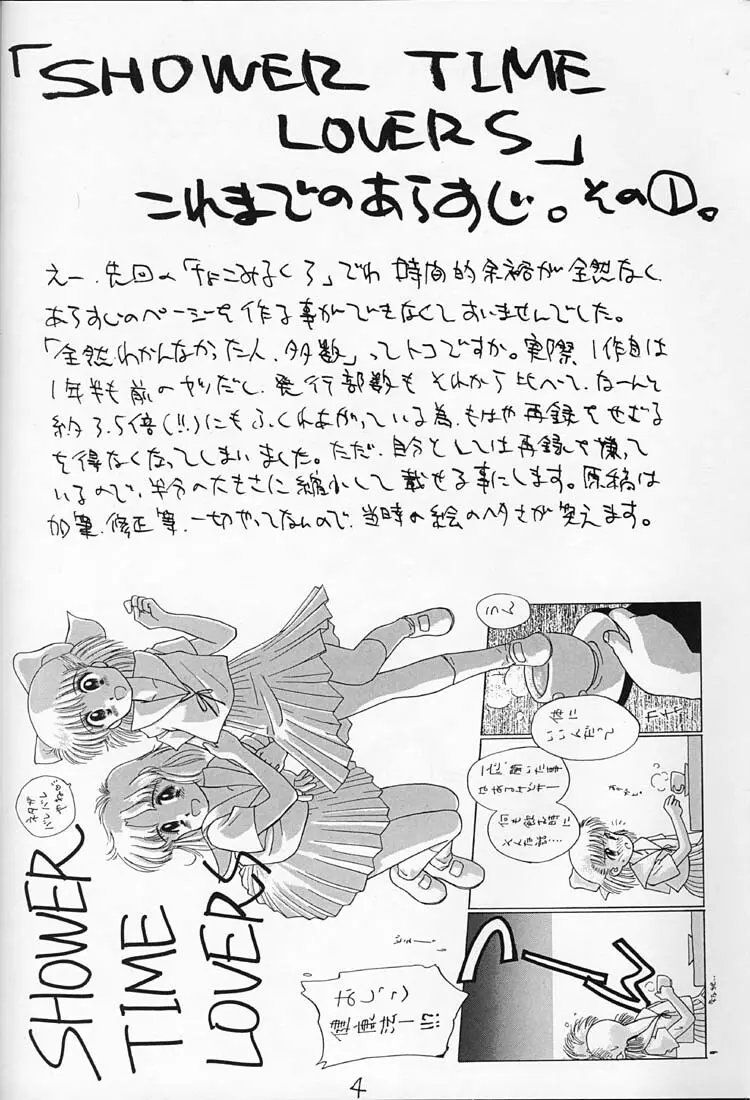 「SHOWER TIME
LOVERS」
これまでのあらすじ。その①。
えー、先回の「ちょこみるくろ」でわ 時間的余裕が全然なく、
あらすじのページを作る事ができなくてすいませんでした。
「全然わかんなかった人、多数」ってトコですか。実際1作目は
1年半も前のヤツだし、発行部数も それから比べて、なーんと
約3.5倍(!!)にもふくれあがっている為、もはや再録をせざる
を得なくなってしまいました。ただ、自分としては再録を嫌って
いるので、半分の大きさに縮小して載せる事にします。原稿は
加筆、修正等、一切やってないので、当時の絵のヘタさが笑えます。
体に
いいんだって
SHOWER
TIME
LOVERS
つーん
健康法ー!!!
4